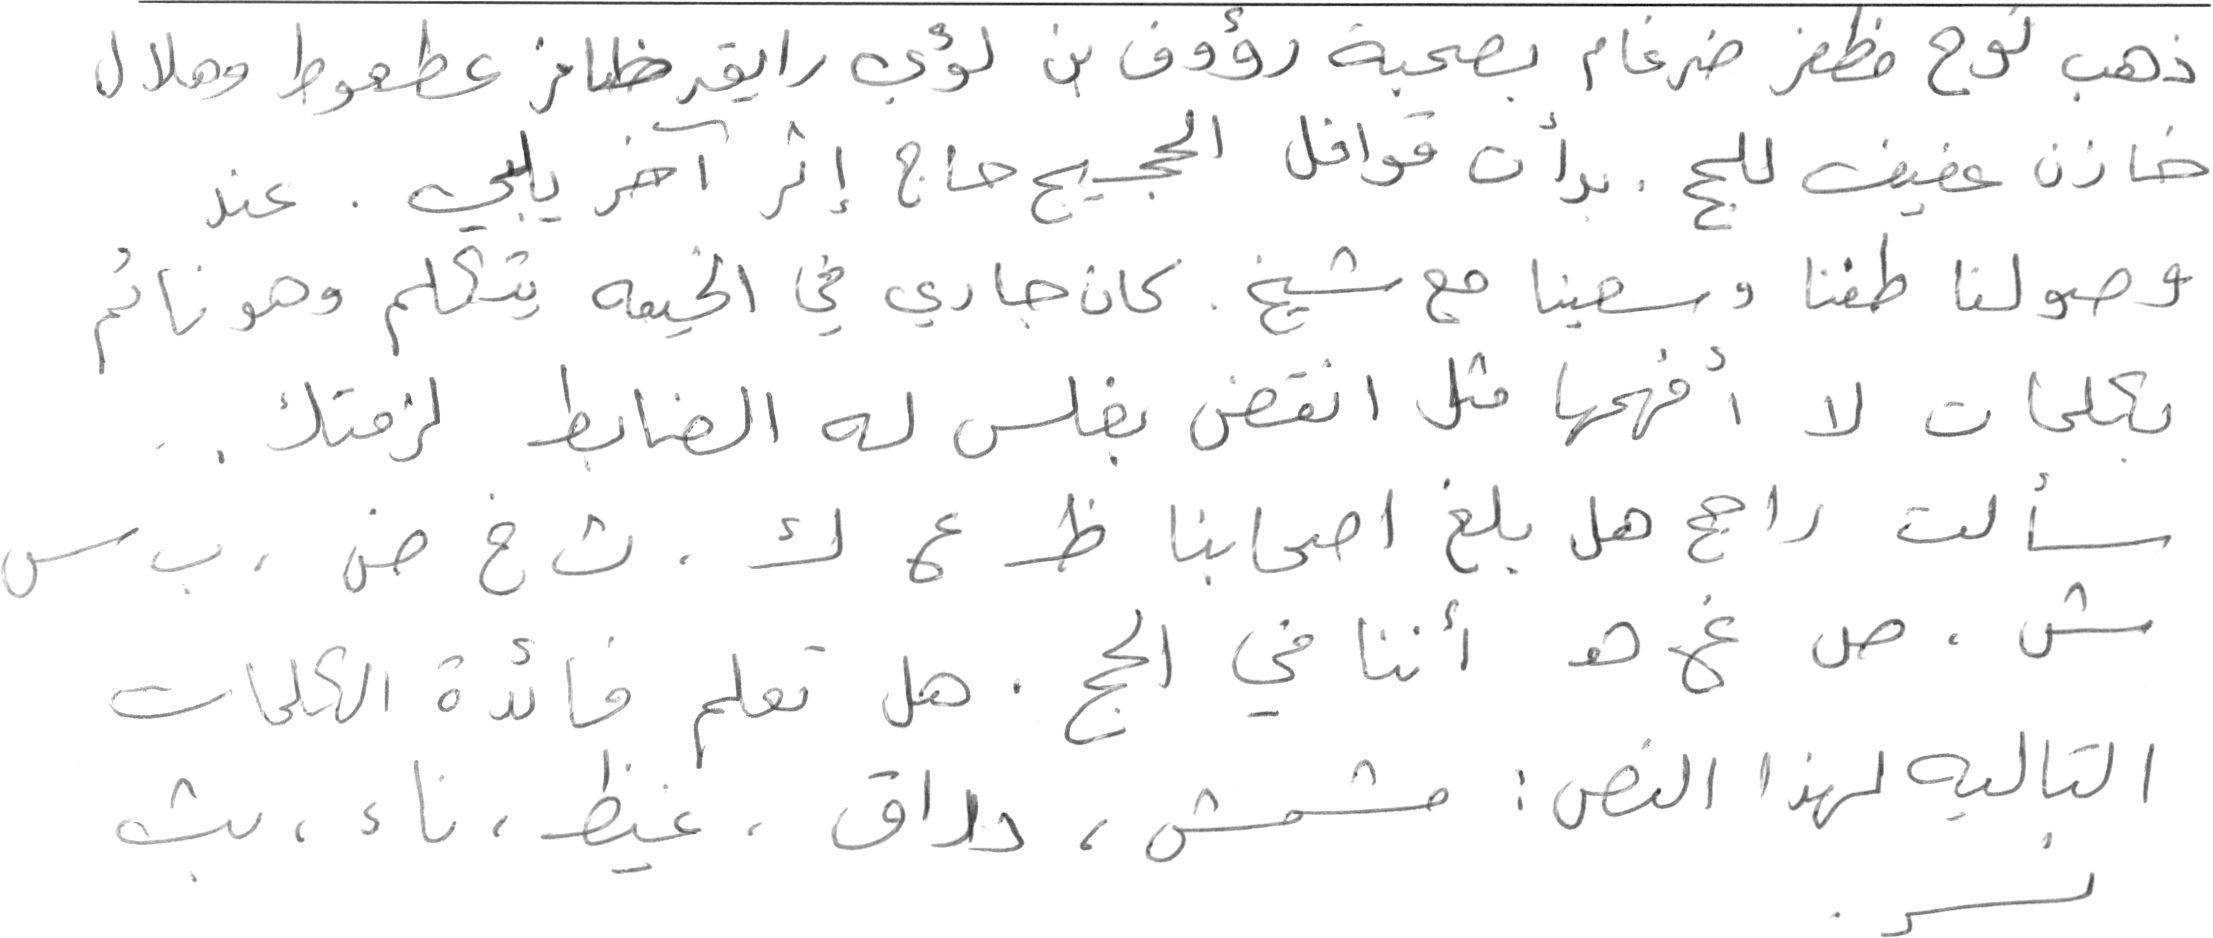 ذهب نوح مظفر ضرغام بصحبة رؤوف بن لؤي رايق ظافر عطعوط وهلال
خازن عفيف للحج . بدأت قوافل الحجيج حاج إثر آخر يلبي . عند
وصولنا طفنا وسعينا مع شيخ . كان جاري في الخيمه يتكلم وهو نائم
بكلمات لا أفهمها مثل انقض بغلس له الضابط لزمتك .
سألت راجح هل بلغ اصحابنا ظ ع ك ، ث غ ض ، ب س
ش ، ص غ ه أننا في الحج . هل تعلم فائدة الكلمات
التاليه لهذا النص : مشمش ، دراق ، غيظ ، ناء ، بث
نسر .